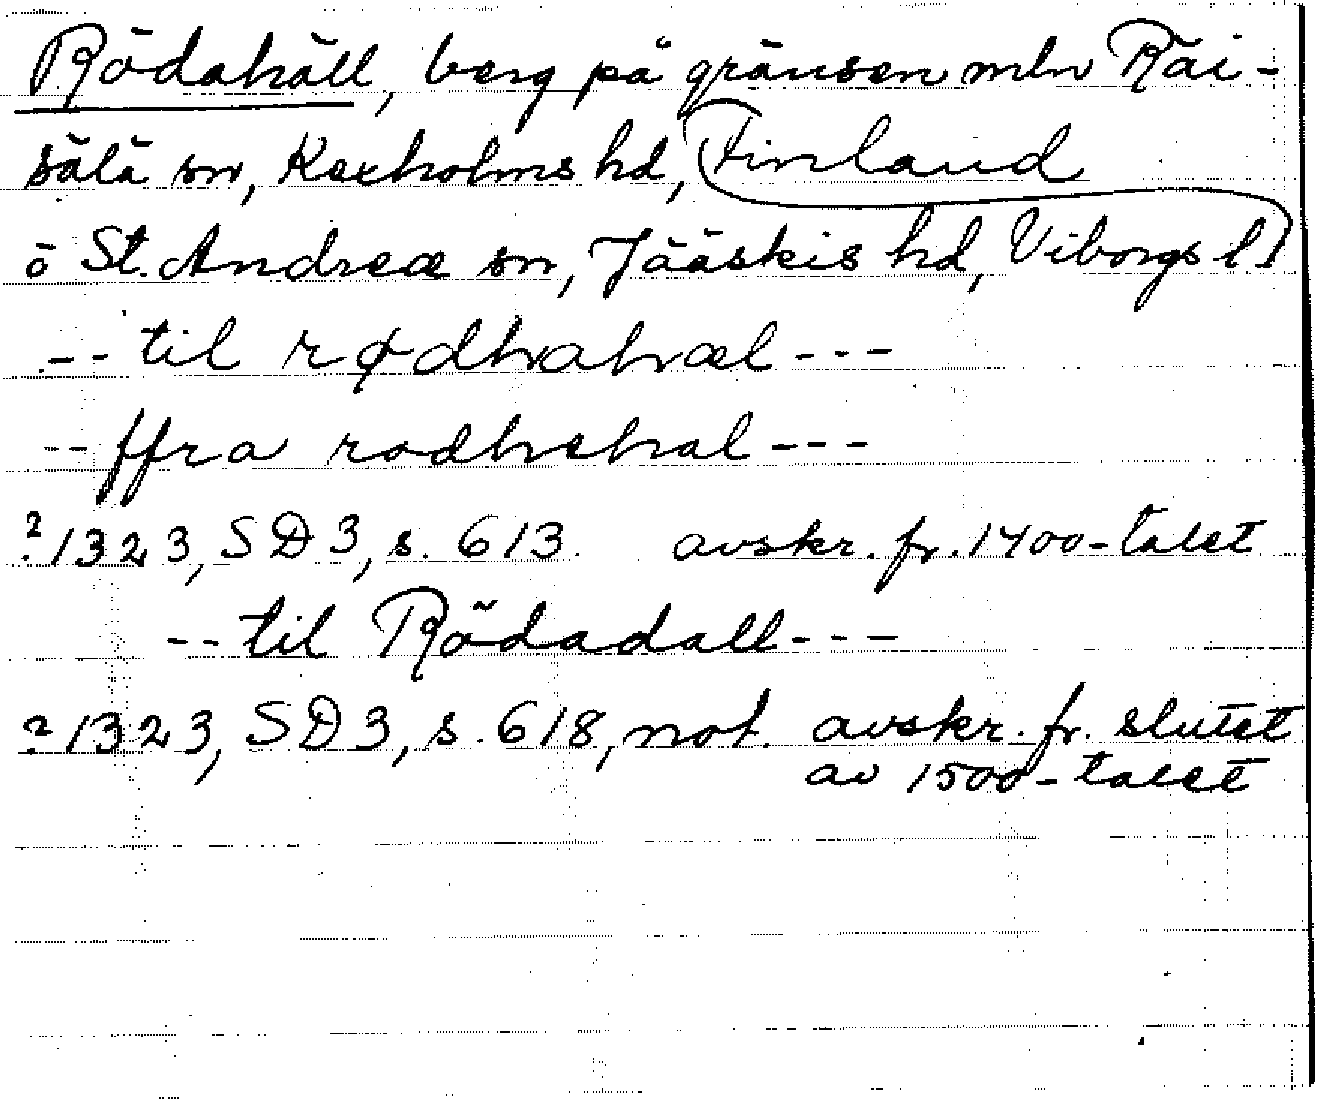 Rödahäll, berg på gränsen mln Räi-
sälä sn, Kexholms hd, Finland
o St. Andreæ sn, Jääskis hd, Viborgs l
-- til rødhahæl ---
-- ffra rodhehal ---
? 1323, SD 3, s. 613. avskr. fr. 1400-talet
-- til Rödadall ---
? 1323, SD 3, s. 618, not. avskr. fr. slutet
av 1500-talet